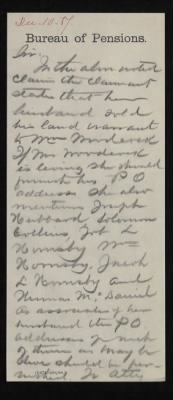 Dec. 10. 87
Bureau of Pensions.
Sir,
In the above noted
claim the claimant
states that her
husband sold
his land warrant
to Wm Woodcock
If Mr Woodcock
is living she should
furnish his P O
address. She also
mentions Joseph
Hubbard Solomon
Collins, Job L
Hornsby Wm
Hornsby, Jacob
L Hornsby and
Thomas McDaniel
as associates of her
husband the PO
addresses of such
of them as may be
alive should be fur-
nished. To Atty